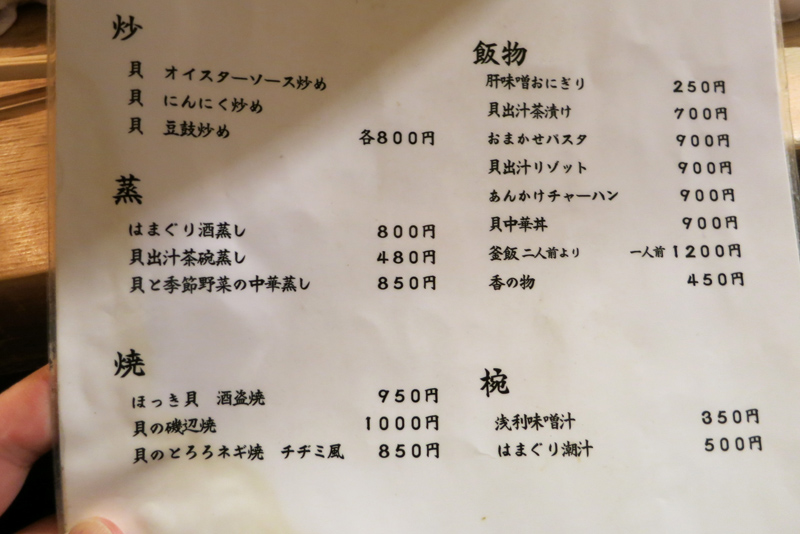 炒
貝 オイスターソース炒め
貝 にんにく炒め
貝 豆鼓炒め 各800円
蒸
はまぐり酒蒸し 800円
貝出汁茶碗蒸し 480円
貝と季節野菜の中華蒸し 850円
焼
ほっき貝 酒盗焼 950円
貝の磯辺焼 1000円
貝のとろろネギ焼 チヂミ風 850円
飯物
肝味噌おにぎり 250円
貝出汁茶漬け 700円
おまかせパスタ 900円
貝出汁リゾット 900円
あんかけチャーハン 900円
貝中華丼 900円
釜飯 二人前より 一人前 1200円
香の物 450円
椀
浅利味噌汁 350円
はまぐり潮汁 500円